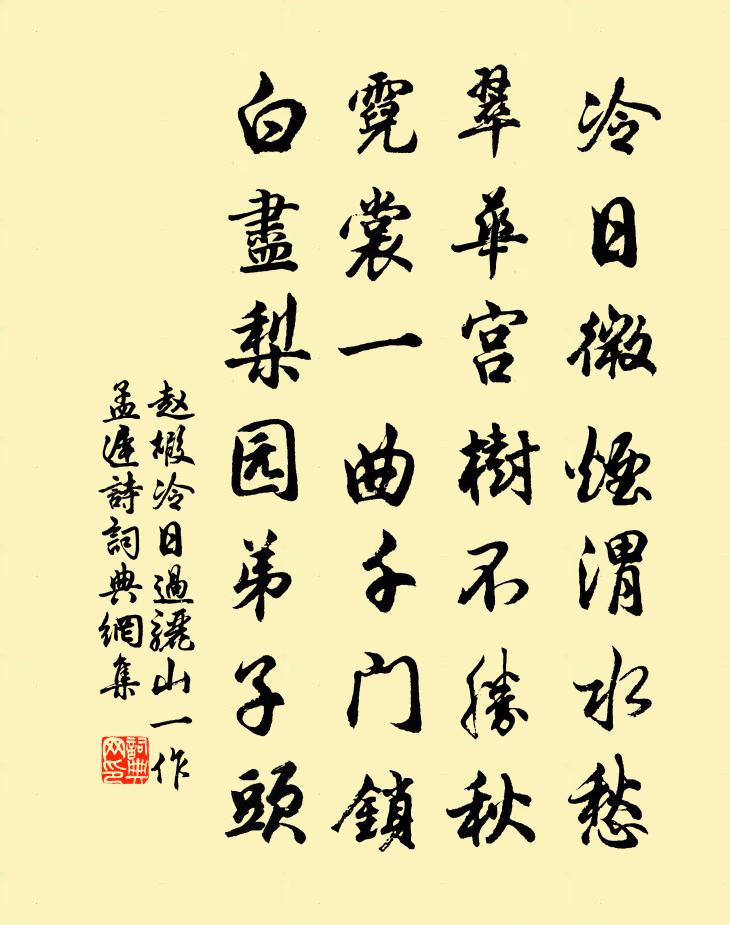 冷日微煙渭水愁
翠華宮樹不勝秋
霓裳一曲千门鎖
白盡梨园弟子頭
赵嘏冷日過驪山一作
孟遲詩詞典網集
詞典网印